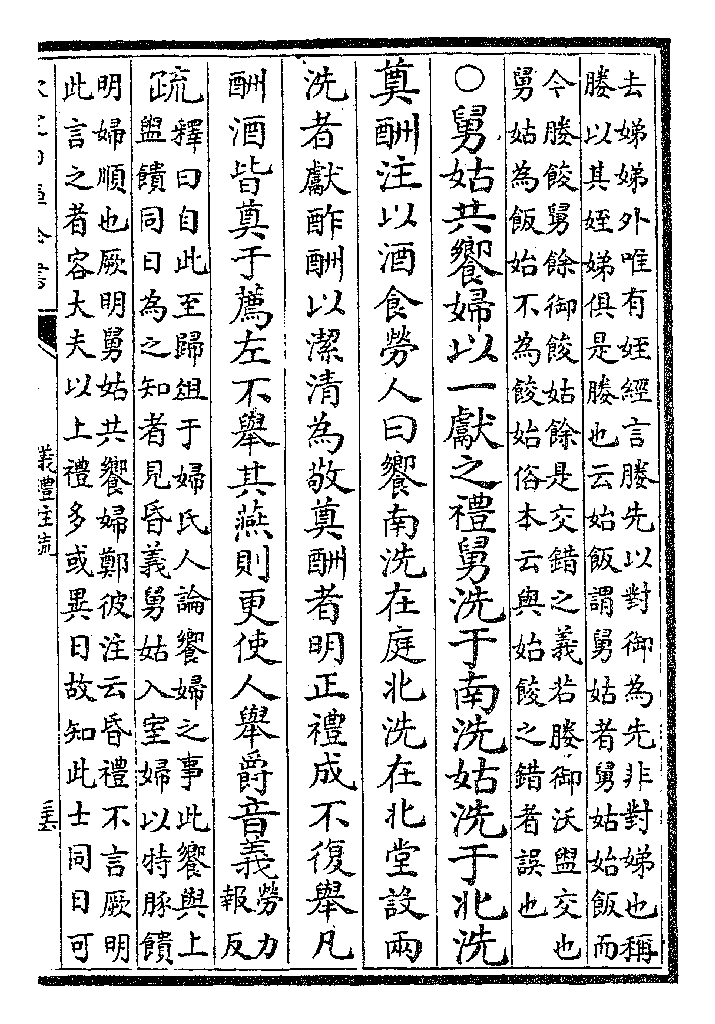 去娣娣外唯有姪經言媵先以對御為先非對娣也稱
媵以其姪娣俱是媵也云始飯謂舅姑者舅姑始飯而
今媵餕舅餘御餕姑餘是交錯之義若媵御沃盥交也
舅姑為飯始不為餕始俗本云與始餕之錯者誤也
○舅姑共饗婦以一獻之禮舅洗于南洗姑洗于北洗
奠酬注以酒食勞人曰饗南洗在庭北洗在北堂設兩
洗者獻酢酬以潔清為敬奠酬者明正禮成不復舉凡
酬酒皆奠于薦左不舉其燕則更使人舉爵音義勞力
報反
疏釋曰自此至歸俎于婦氏人論饗婦之事此饗與上
盥饋同日為之知者見昏義舅姑入室婦以特豚饋
明婦順也厥明舅姑共饗婦鄭彼注云昏禮不言厥明
此言之者容大夫以上禮多或異日故知此士同日可
欽定四庫全書
儀禮注疏